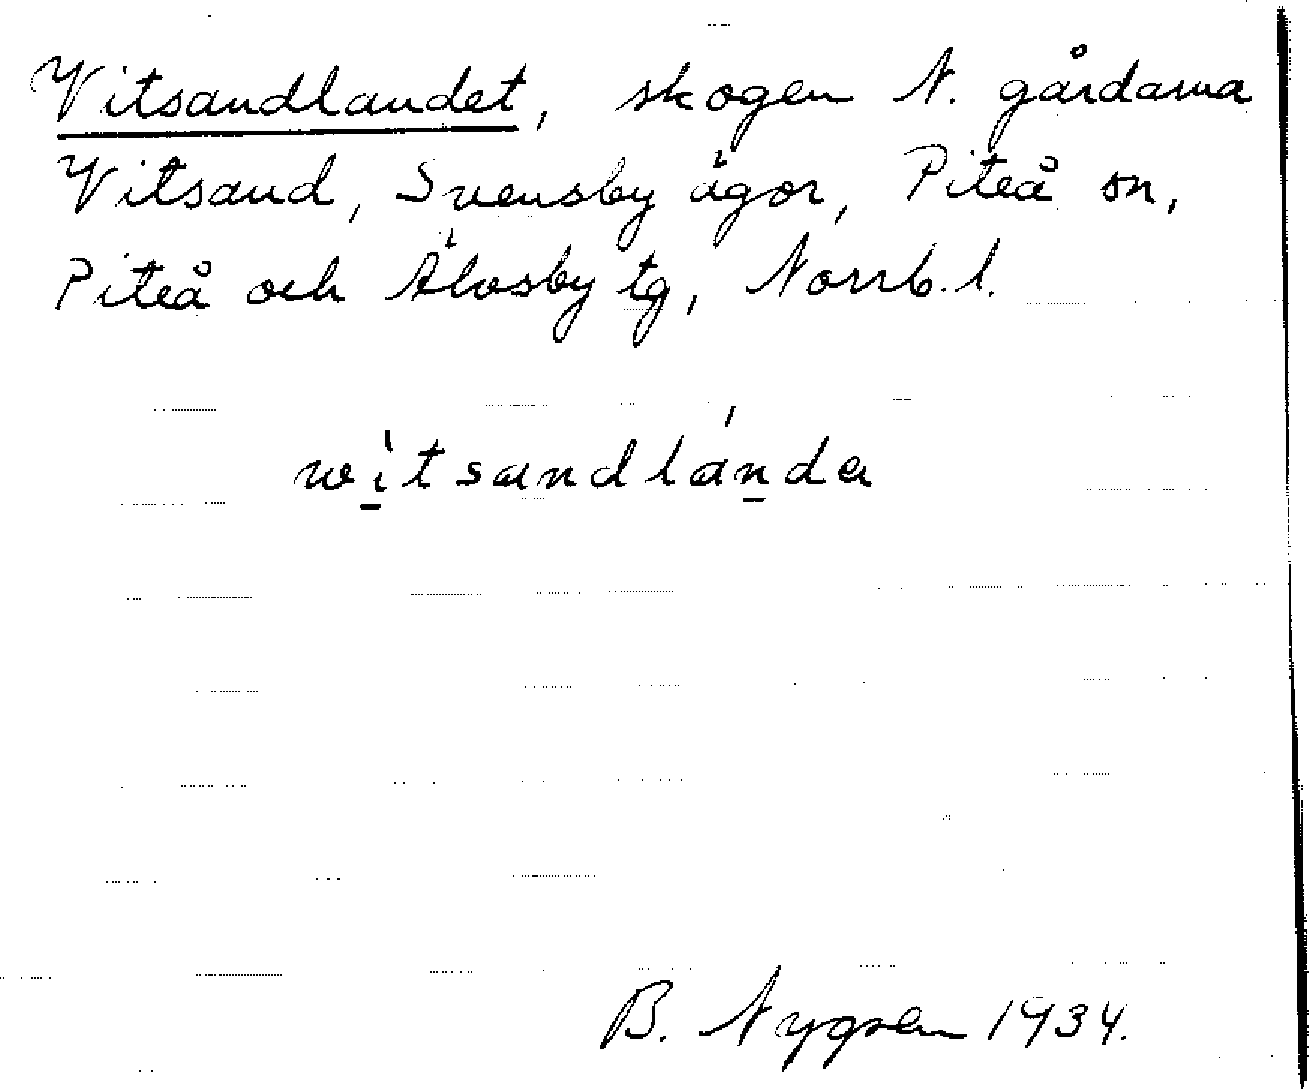 Vitsandlandet, skogen N. gårdarna
Vitsand, Svensby ägor, Piteå sn,
Piteå och Älvsby tg, Norrb. l.
wi̱tsandlaṉda
B. Nygren 1934.